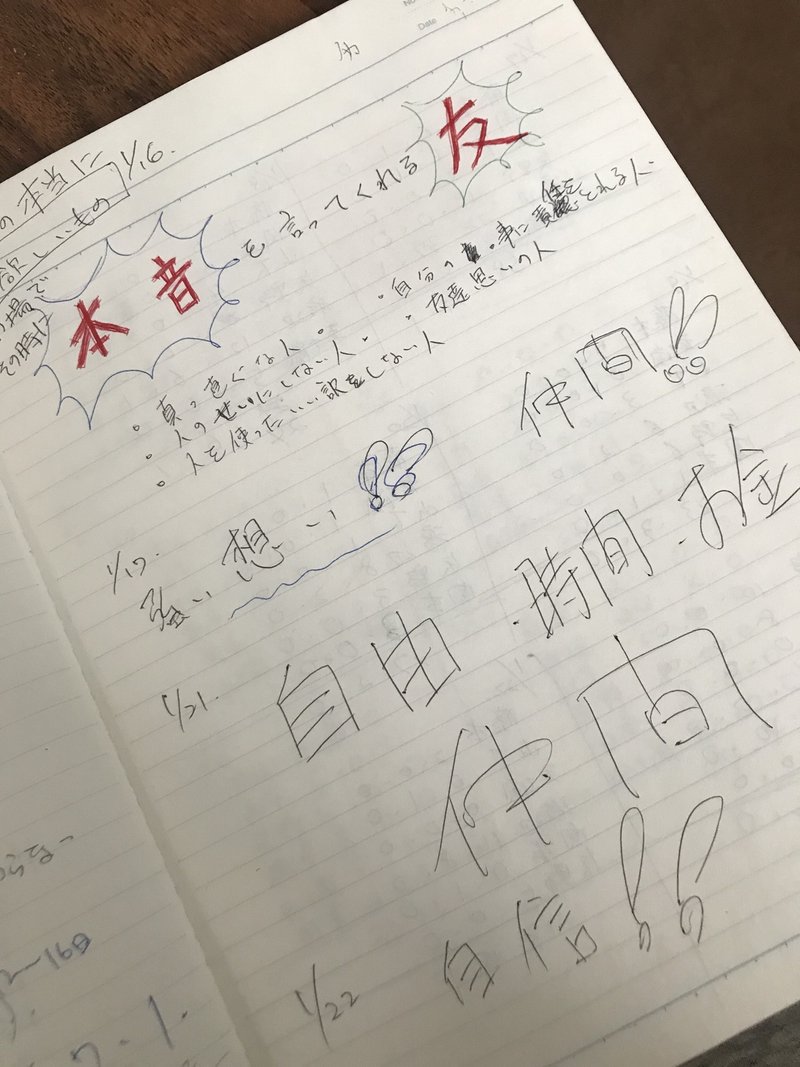 Date
の本当に
欲しいもの
1/16.
の場で
その時に
本音を言ってくれる友
・真っ直ぐな人。
・人のせいにしない人・
・人を使ったいい訳をしない人
・自分の・事に責任をとれる人・
・友達思いの人
仲間!!
1/17.
強い想い!!
1/21.
自由・時間・お金
仲間
1/22
自信!!
らな
〜16日